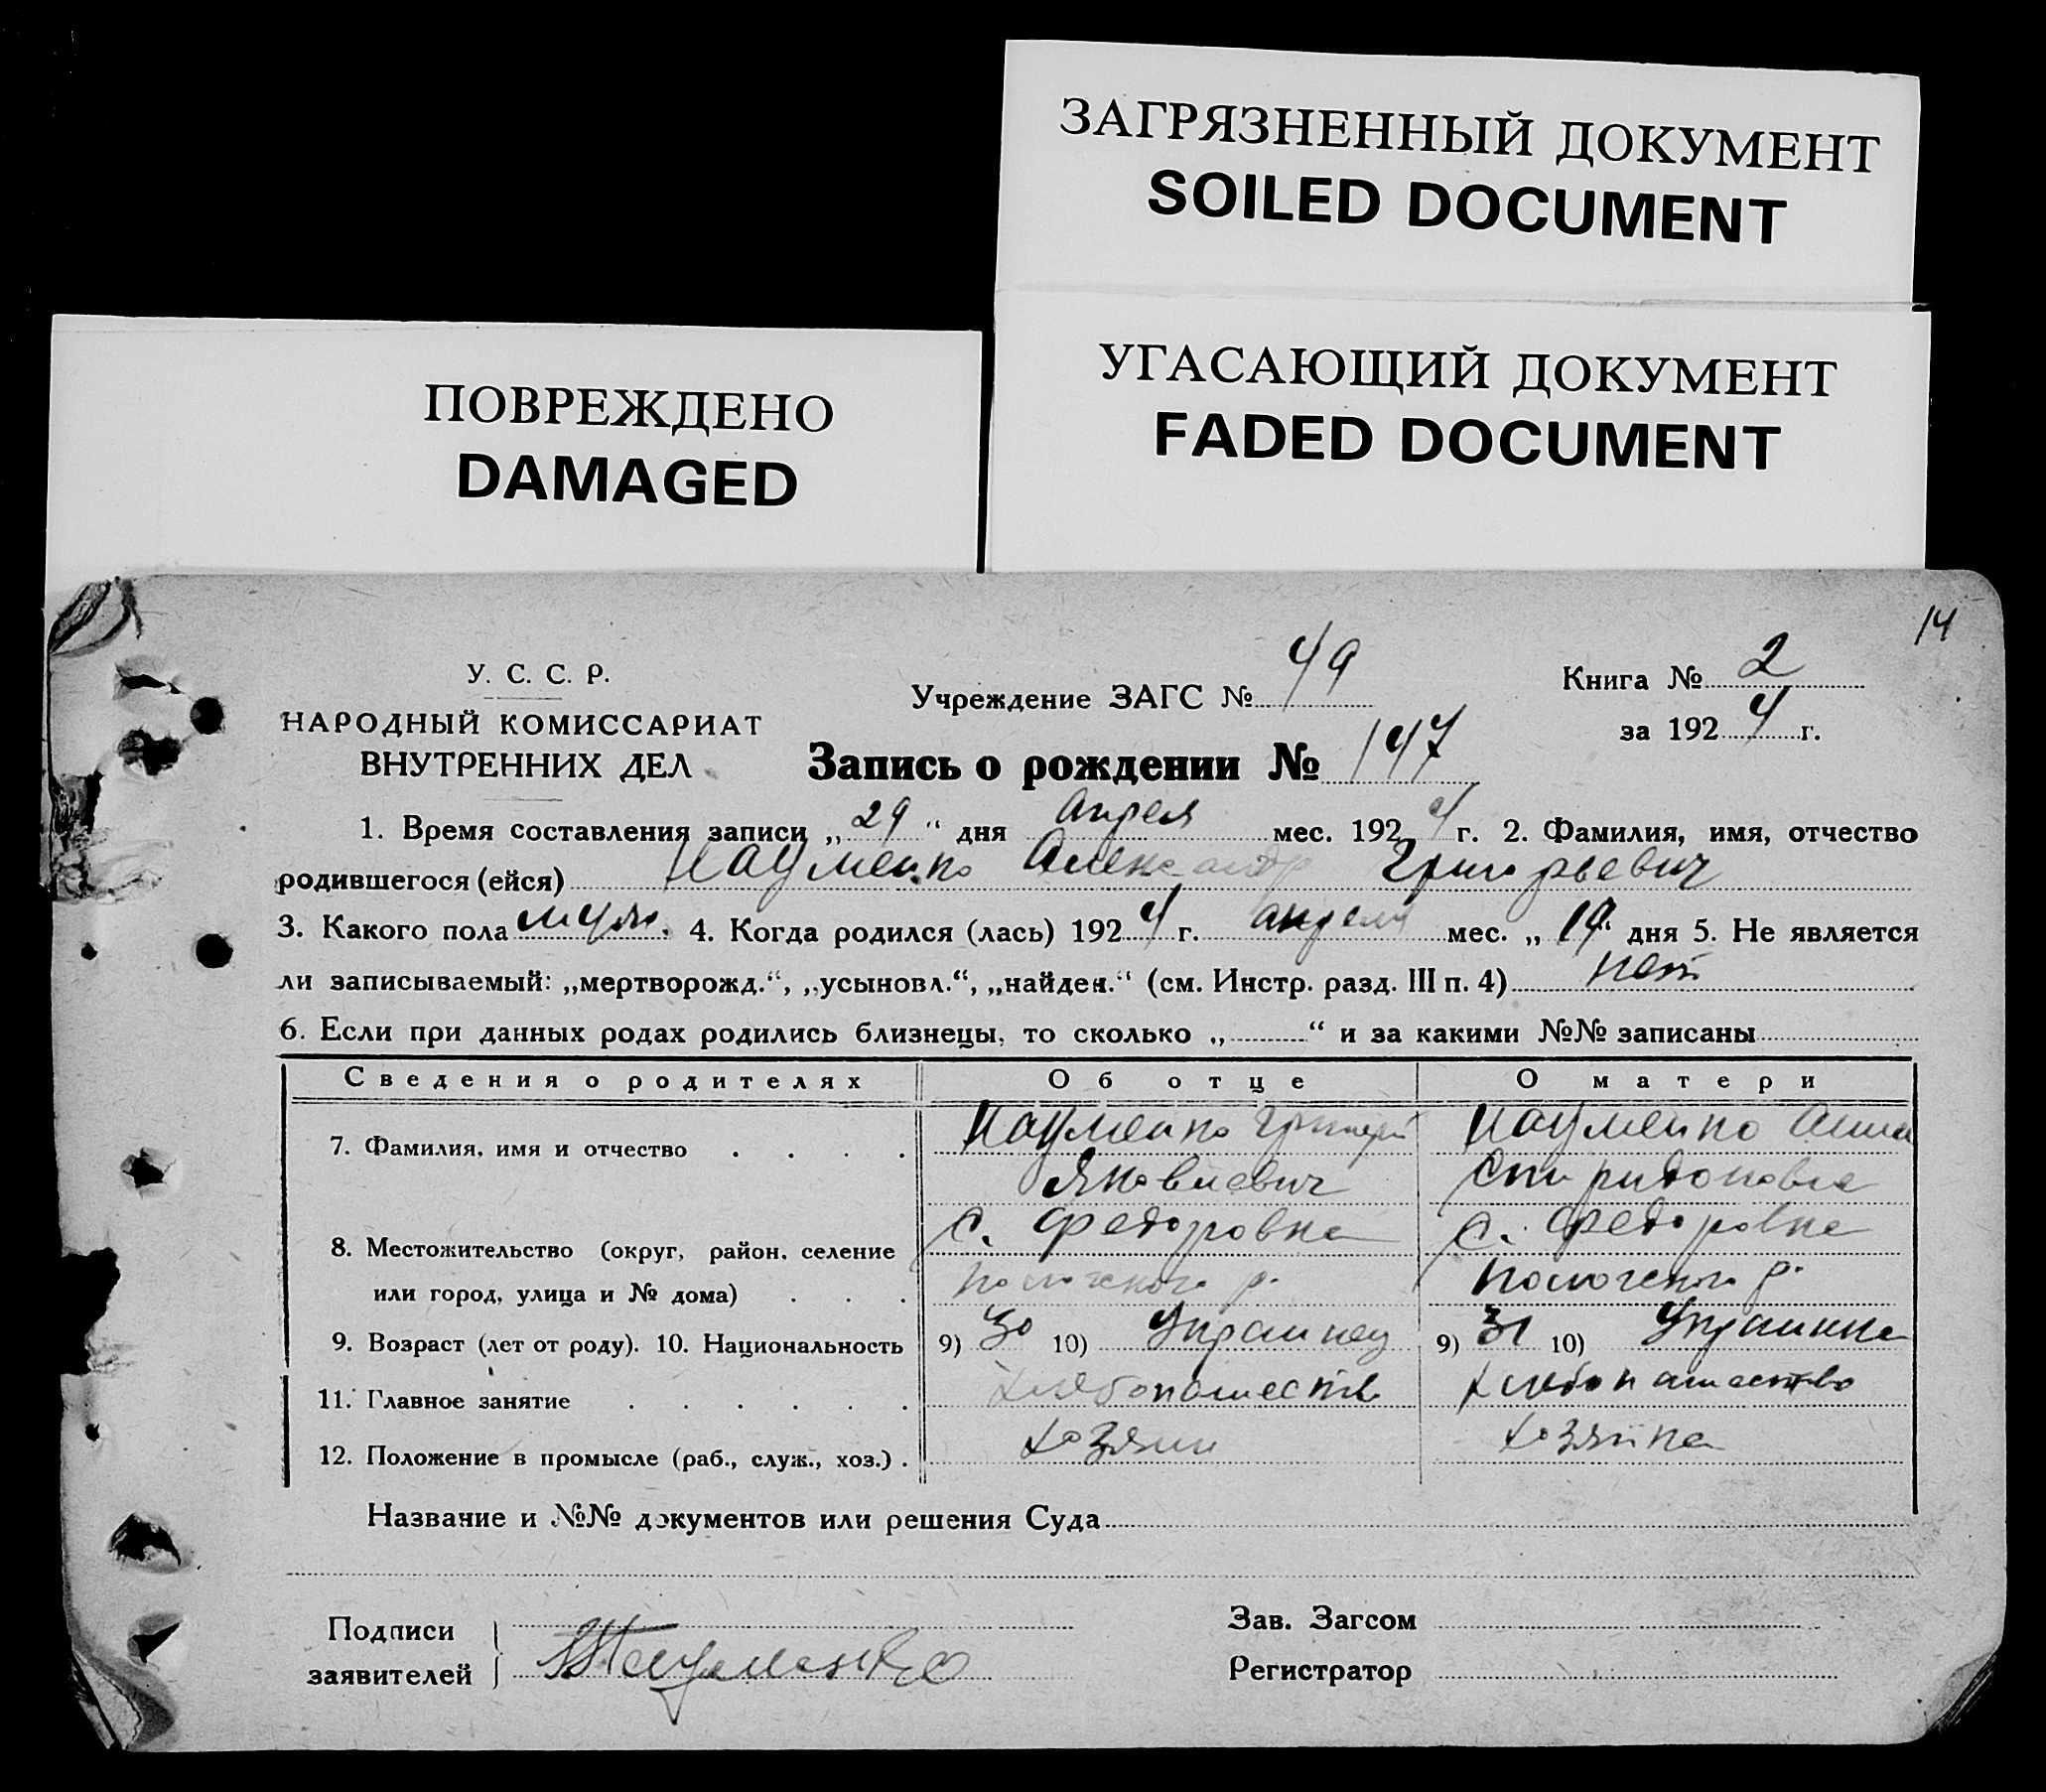 ЗАГРЯЗНЕННЫЙ ДОКУМЕНТ
SOILED DOCUMENT
ПОВРЕЖДЕНО
DAMAGED
УГАСАЮЩИЙ ДОКУМЕНТ
FADED DOCUMENT
14
У. С. С. Р.
НАРОДНЫЙ КОМИССАРИАТ
ВНУТРЕННИХ ДЕЛ
Учреждение ЗАГС № 49
Книга № 2
за 1924 г.
Запись о рождении № 147
1. Время составления записи „29“ дня апреля мес. 1924 г. 2. Фамилия, имя, отчество
родившегося (ейся) Науменко Александр Григорьевич
3. Какого пола муж. 4. Когда родился (лась) 1924 г. апреля мес. „19“ дня 5. Не является
ли записываемый: „мертворожд.“, „усыновл.“, „найден.“ (см. Инстр. разд. III п. 4) нет
6. Если при данных родах родились близнецы, то сколько „ “ и за какими №№ записаны
Сведения о родителях Об отце О матери
7. Фамилия, имя и отчество Науменко Григорий Науменко Анна
Яковлевич Спиридоновна
с. Федоровка с. Федоровка
8. Местожительство (округ, район, селение
или город, улица и № дома) Пологского р. Пологского р.
9. Возраст (лет от роду). 10. Национальность 9) 30 10) Украинец 9) 31 10) Украинка
11. Главное занятие хлебопашество хлебопашество
12. Положение в промысле (раб., служ., хоз.) хозяин хозяйка
Название и №№ документов или решения Суда
Подписи
заявителей Науменко
Зав. Загсом
Регистратор